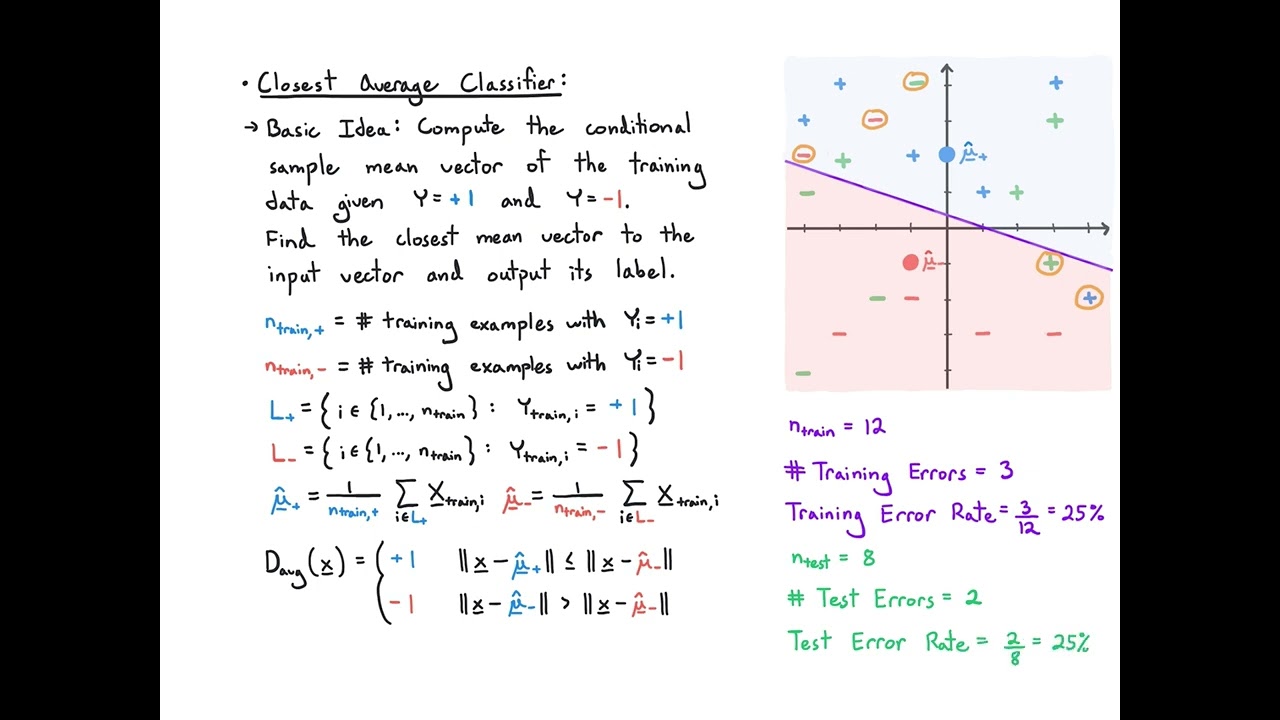 • Closest Average Classifier:
→ Basic Idea: Compute the conditional
sample mean vector of the training
data given Y = +1 and Y = -1.
Find the closest mean vector to the
input vector and output its label.
n_train,+ = # training examples with Y_i = +1
n_train,- = # training examples with Y_i = -1
L_+ = { i ∈ {1, ..., n_train} : Y_train,i = +1 }
L_- = { i ∈ {1, ..., n_train} : Y_train,i = -1 }
μ̂_+ = 1/n_train,+ Σ_{i∈L_+} X_train,i μ̂_- = 1/n_train,- Σ_{i∈L_-} X_train,i
D_avg(x) = { +1 ‖x - μ̂_+‖ ≤ ‖x - μ̂_-‖
-1 ‖x - μ̂_-‖ > ‖x - μ̂_-‖
μ̂_+
μ̂_-
n_train = 12
# Training Errors = 3
Training Error Rate = 3/12 = 25%
n_test = 8
# Test Errors = 2
Test Error Rate = 2/8 = 25%